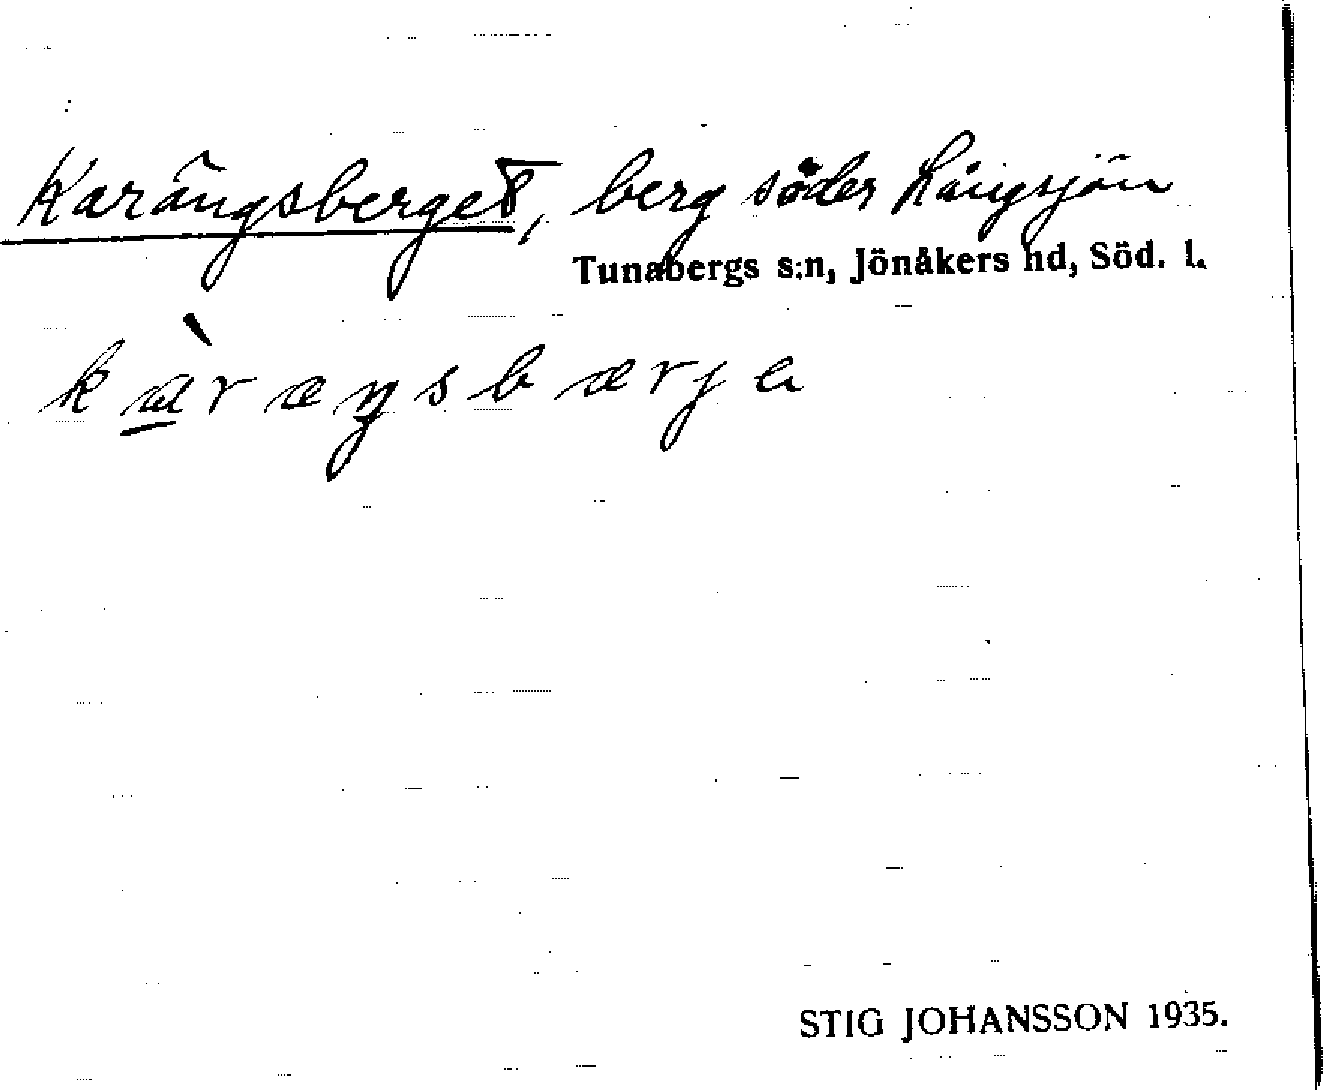 Karängsberget, berg söder Långsjön
Tunabergs s:n, Jönåkers hd, Söd. l.
kàræŋsbærjə
STIG JOHANSSON 1935.